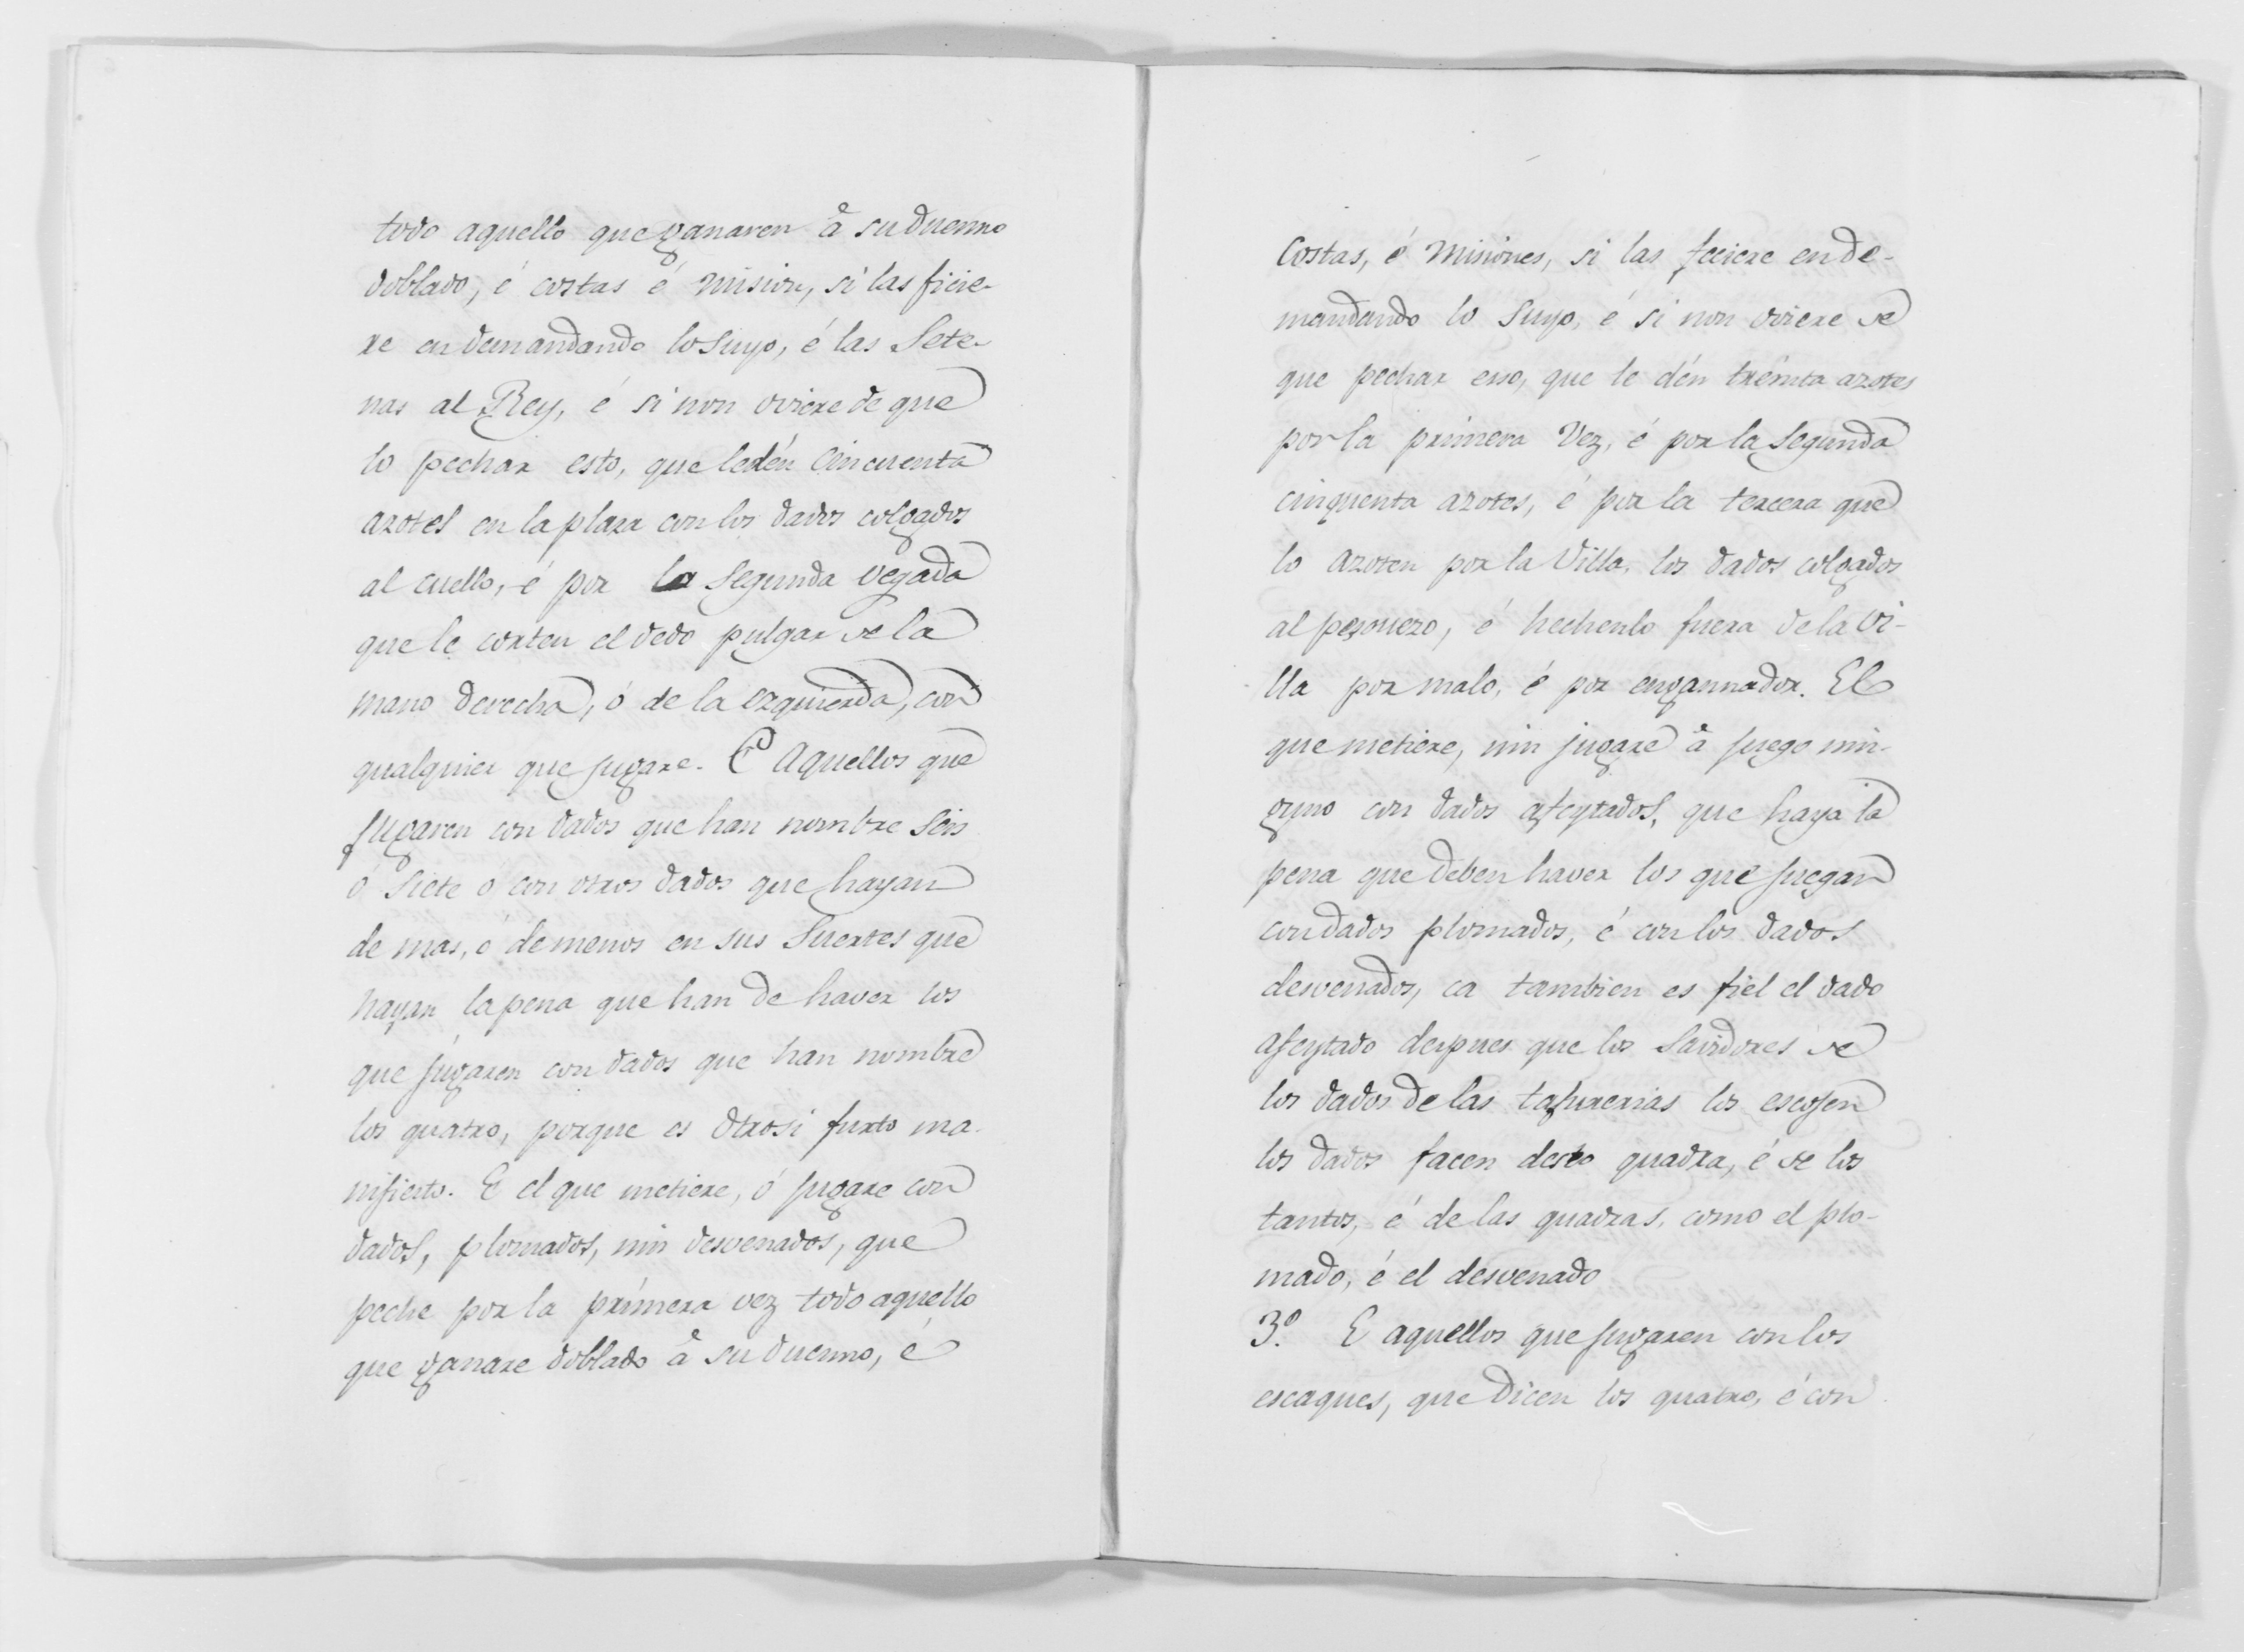 todo aquello que ganaren â su duenno
doblado, é costas é mision, si las ficie-
re en demandando lo suyo, é las Sete-
nas al Rey, é si non oviere de que
lo pechar esto, que le dén Cincuenta
azotes en la plaza con los dados colgados
al cuello, é por la segunda vegada
que le corten el dedo pulgar de la
mano derecha, ó de la ezquierda, con
qualquier que jugare. E Aquellos que
jugaren con dados que han nombre Seis
ó Siete ó con otros dados que hayan
de mas, ó de menos en sus Suertes que
hayan la pena que han de haver los
que jugaren con dados que han nombre
los quatro, porque es Otrosi furto ma-
nifiesto. E el que metiere, ó jugare con
dados, plomados, nin desvenados, que
peche por la primera vez todo aquello
que ganare doblado â su duenno, é
Costas, é Misiones, si las feciere en de-
mandando lo Suyo, é si non oviere de
que pechar eso, que le dén treinta azotes
por la primera Vez, é por la Segunda
cinquenta azotes, é por la tercera que
lo azoten por la Villa, los dados colgados
al pezonero, é hechenlo fuera de la Vi-
lla por malo, é por engannador. El
que metiere, nin jugare â juego nin-
guno con dados afeytados, que haya la
pena que deben haver los que juegan
con dados plomados, é con los dados
desvenados, ca tambien es fiel el dado
afeytado despues que los Savidores de
los dados de las tafurerias los escojen
los dados facen desto quadra, é de los
tantos, é de las quadras, como el plo-
mado, é el desvenado
3.º E aquellos que jugaren con los
escaques, que dicen los quatro, é con